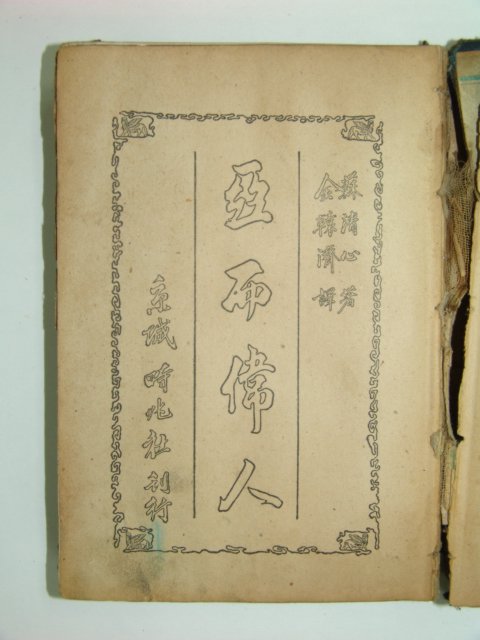 蘇清心 著
金韓濟 譯
亞西偉人
京城 時兆社 刊行